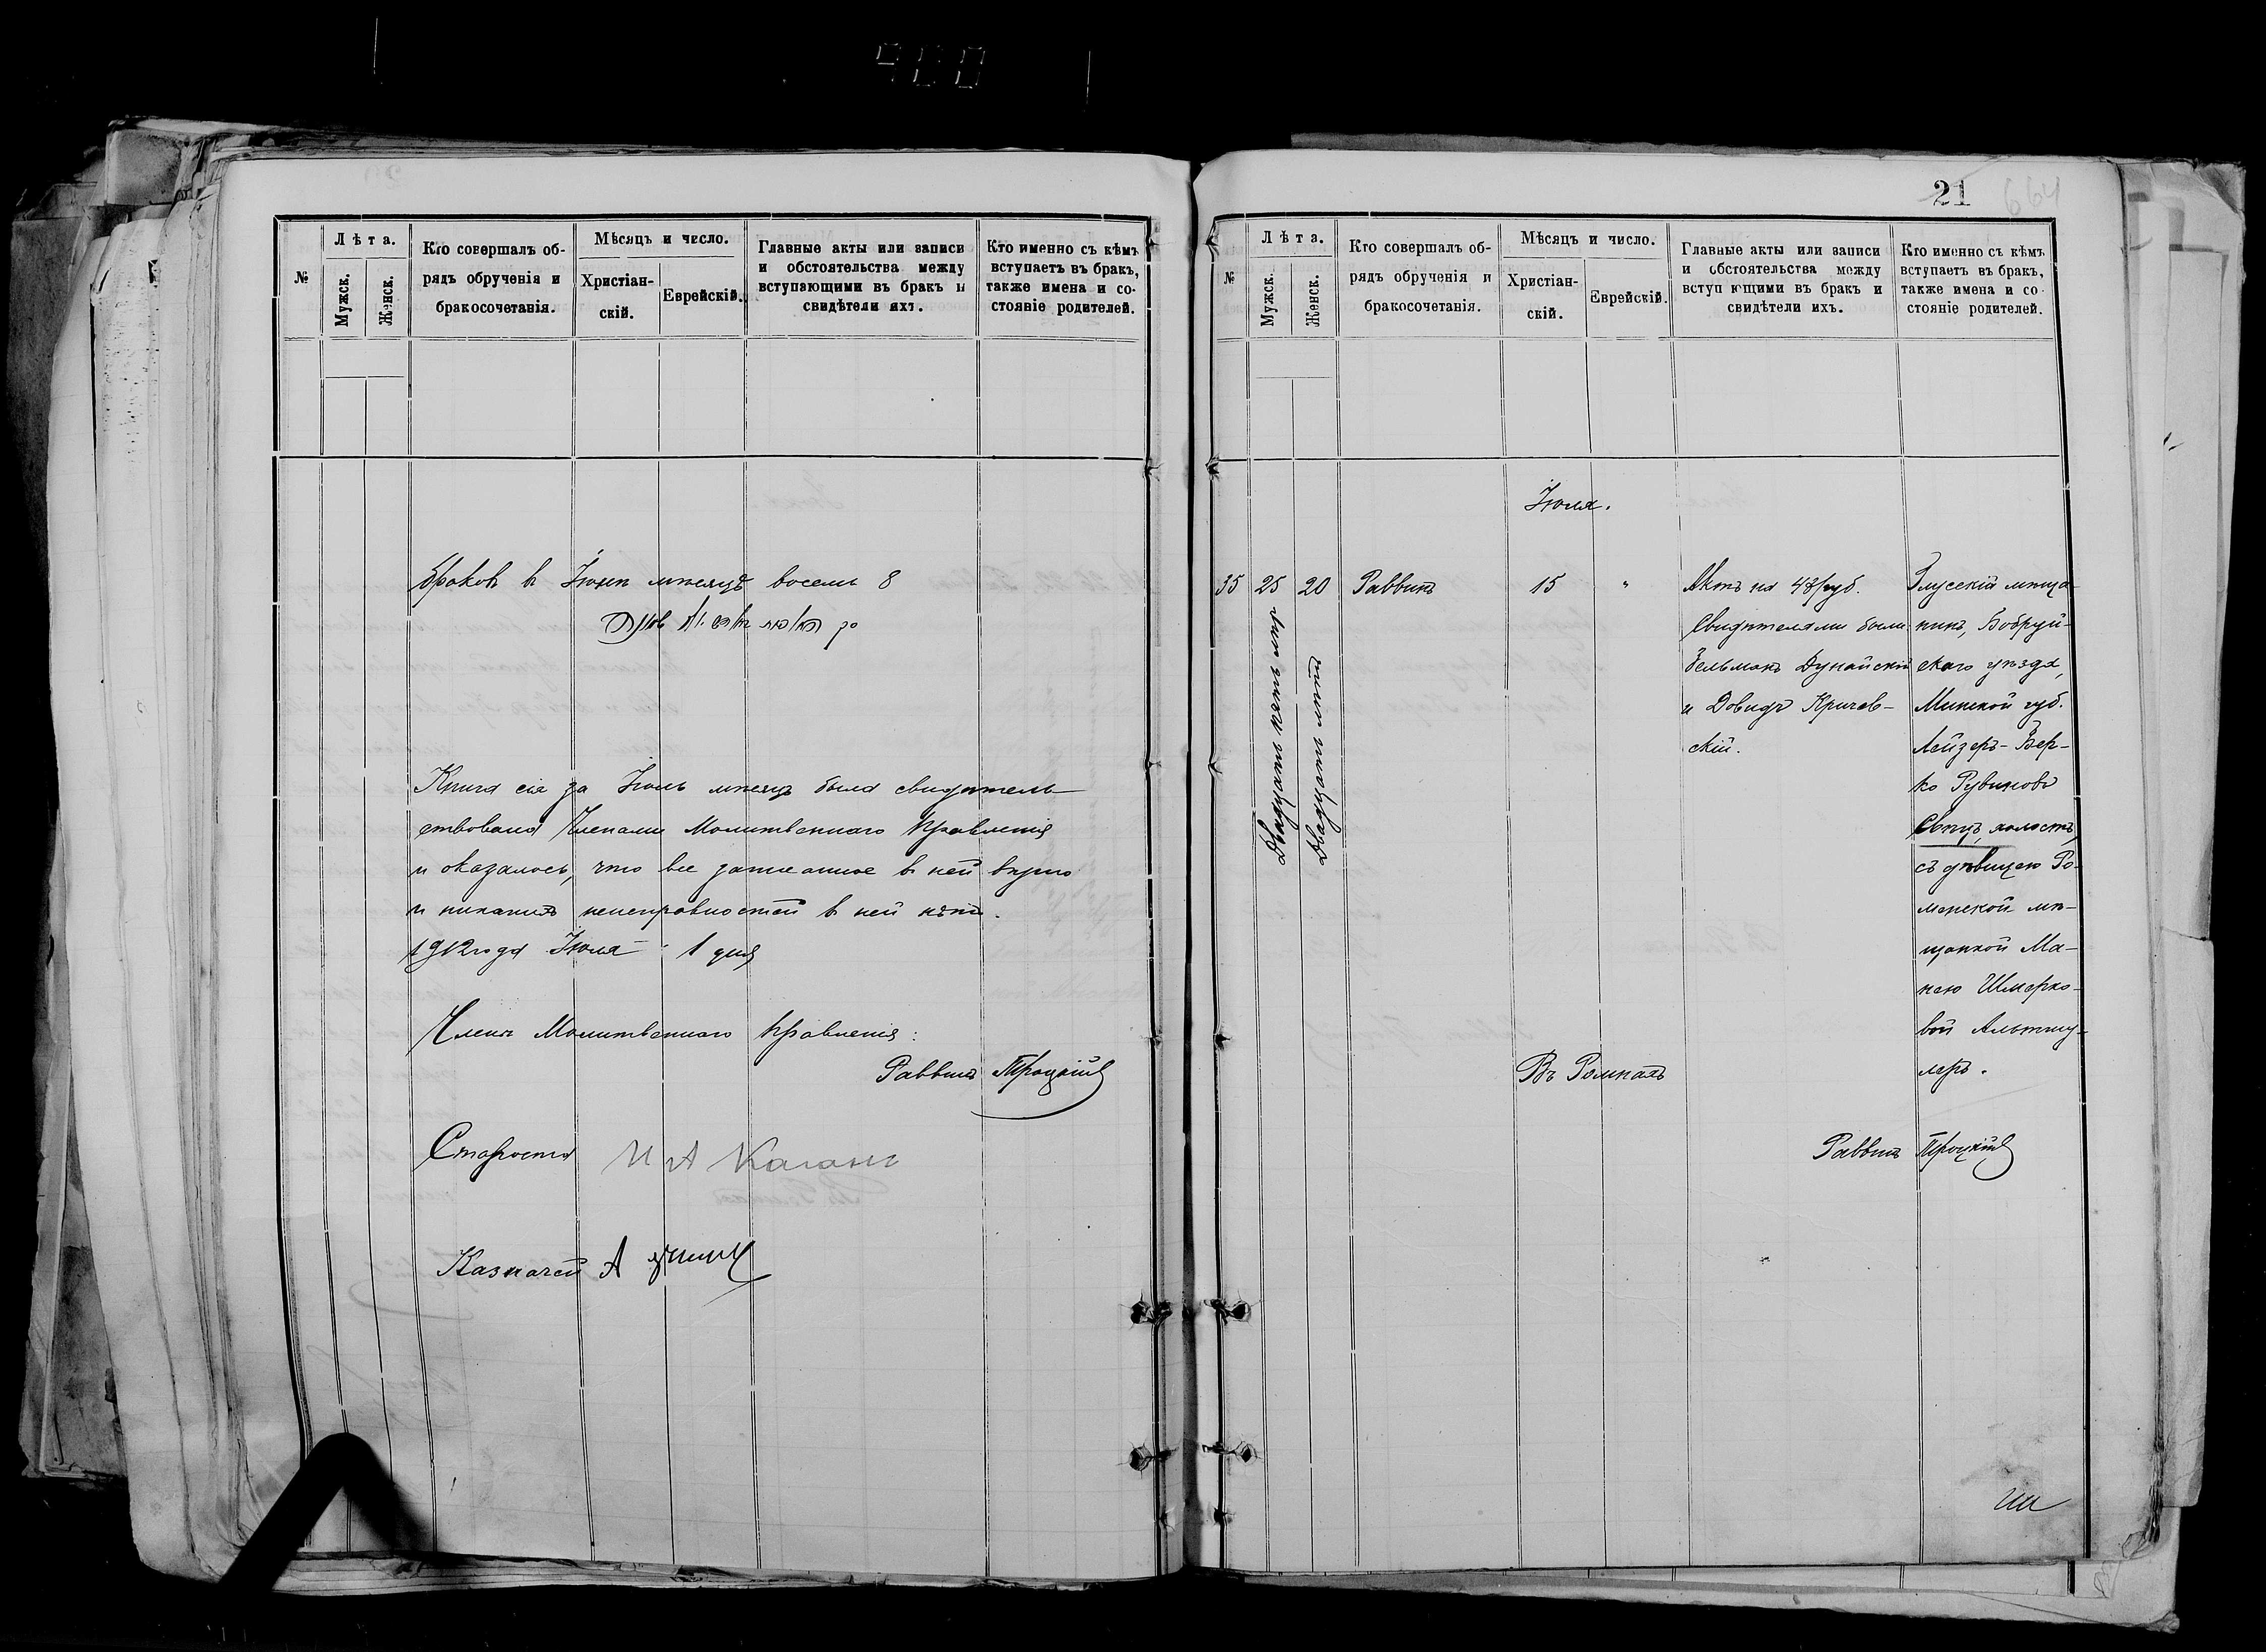 900
№
Лѣта.
Мужск.
Женск.
Кто совершалъ об-
рядъ обрученія и
бракосочетанія.
Мѣсяцъ и число.
Христіан-
скій.
Еврейскій.
Главные акты или записи
и обстоятельства между
вступающими въ бракъ и
свидѣтели ихъ.
Кто именно съ кѣмъ
вступаетъ въ бракъ,
также имена и со-
стояніе родителей.
Браковъ въ Іюнѣ мѣсяцѣ восемь 8
Книга сія за Іюнь мѣсяцъ была свидѣтель-
ствована Членами Молитвеннаго Правленія
и оказалось, что все записанное въ ней вѣрно
и никакихъ неисправностей въ ней нѣтъ.
1912 года Іюля 1 дня
Члены Молитвеннаго Правленія:
Раввинъ Троцкій
Староста И А Каганъ
Казначей А
21
664
№
Лѣта.
Мужск.
Женск.
Кто совершалъ об-
рядъ обрученія и
бракосочетанія.
Мѣсяцъ и число.
Христіан-
скій.
Еврейскій.
Главные акты или записи
и обстоятельства между
вступ ющими въ бракъ и
свидѣтели ихъ.
Кто именно съ кѣмъ
вступаетъ въ бракъ,
также имена и со-
стояніе родителей.
Іюля.
35
25
Двадцать пять лѣтъ
20
Двадцать лѣтъ
Раввинъ
15
"
Актъ на 48 руб.
Свидѣтелями были:
Зельманъ Дунайскій
и Довидъ Кричев-
скій.
Глусскій мѣща-
нинъ, Бобруй-
скаго уѣзда,
Минской губ.
Лейзеръ-Бер-
ко Рувиновъ
холостъ,
съ дѣвицею Ро-
менской мѣ-
щанкой Ма-
нею Шмерко-
вой Альтшу-
леръ.
Въ Ромнахъ
Раввинъ Троцкій